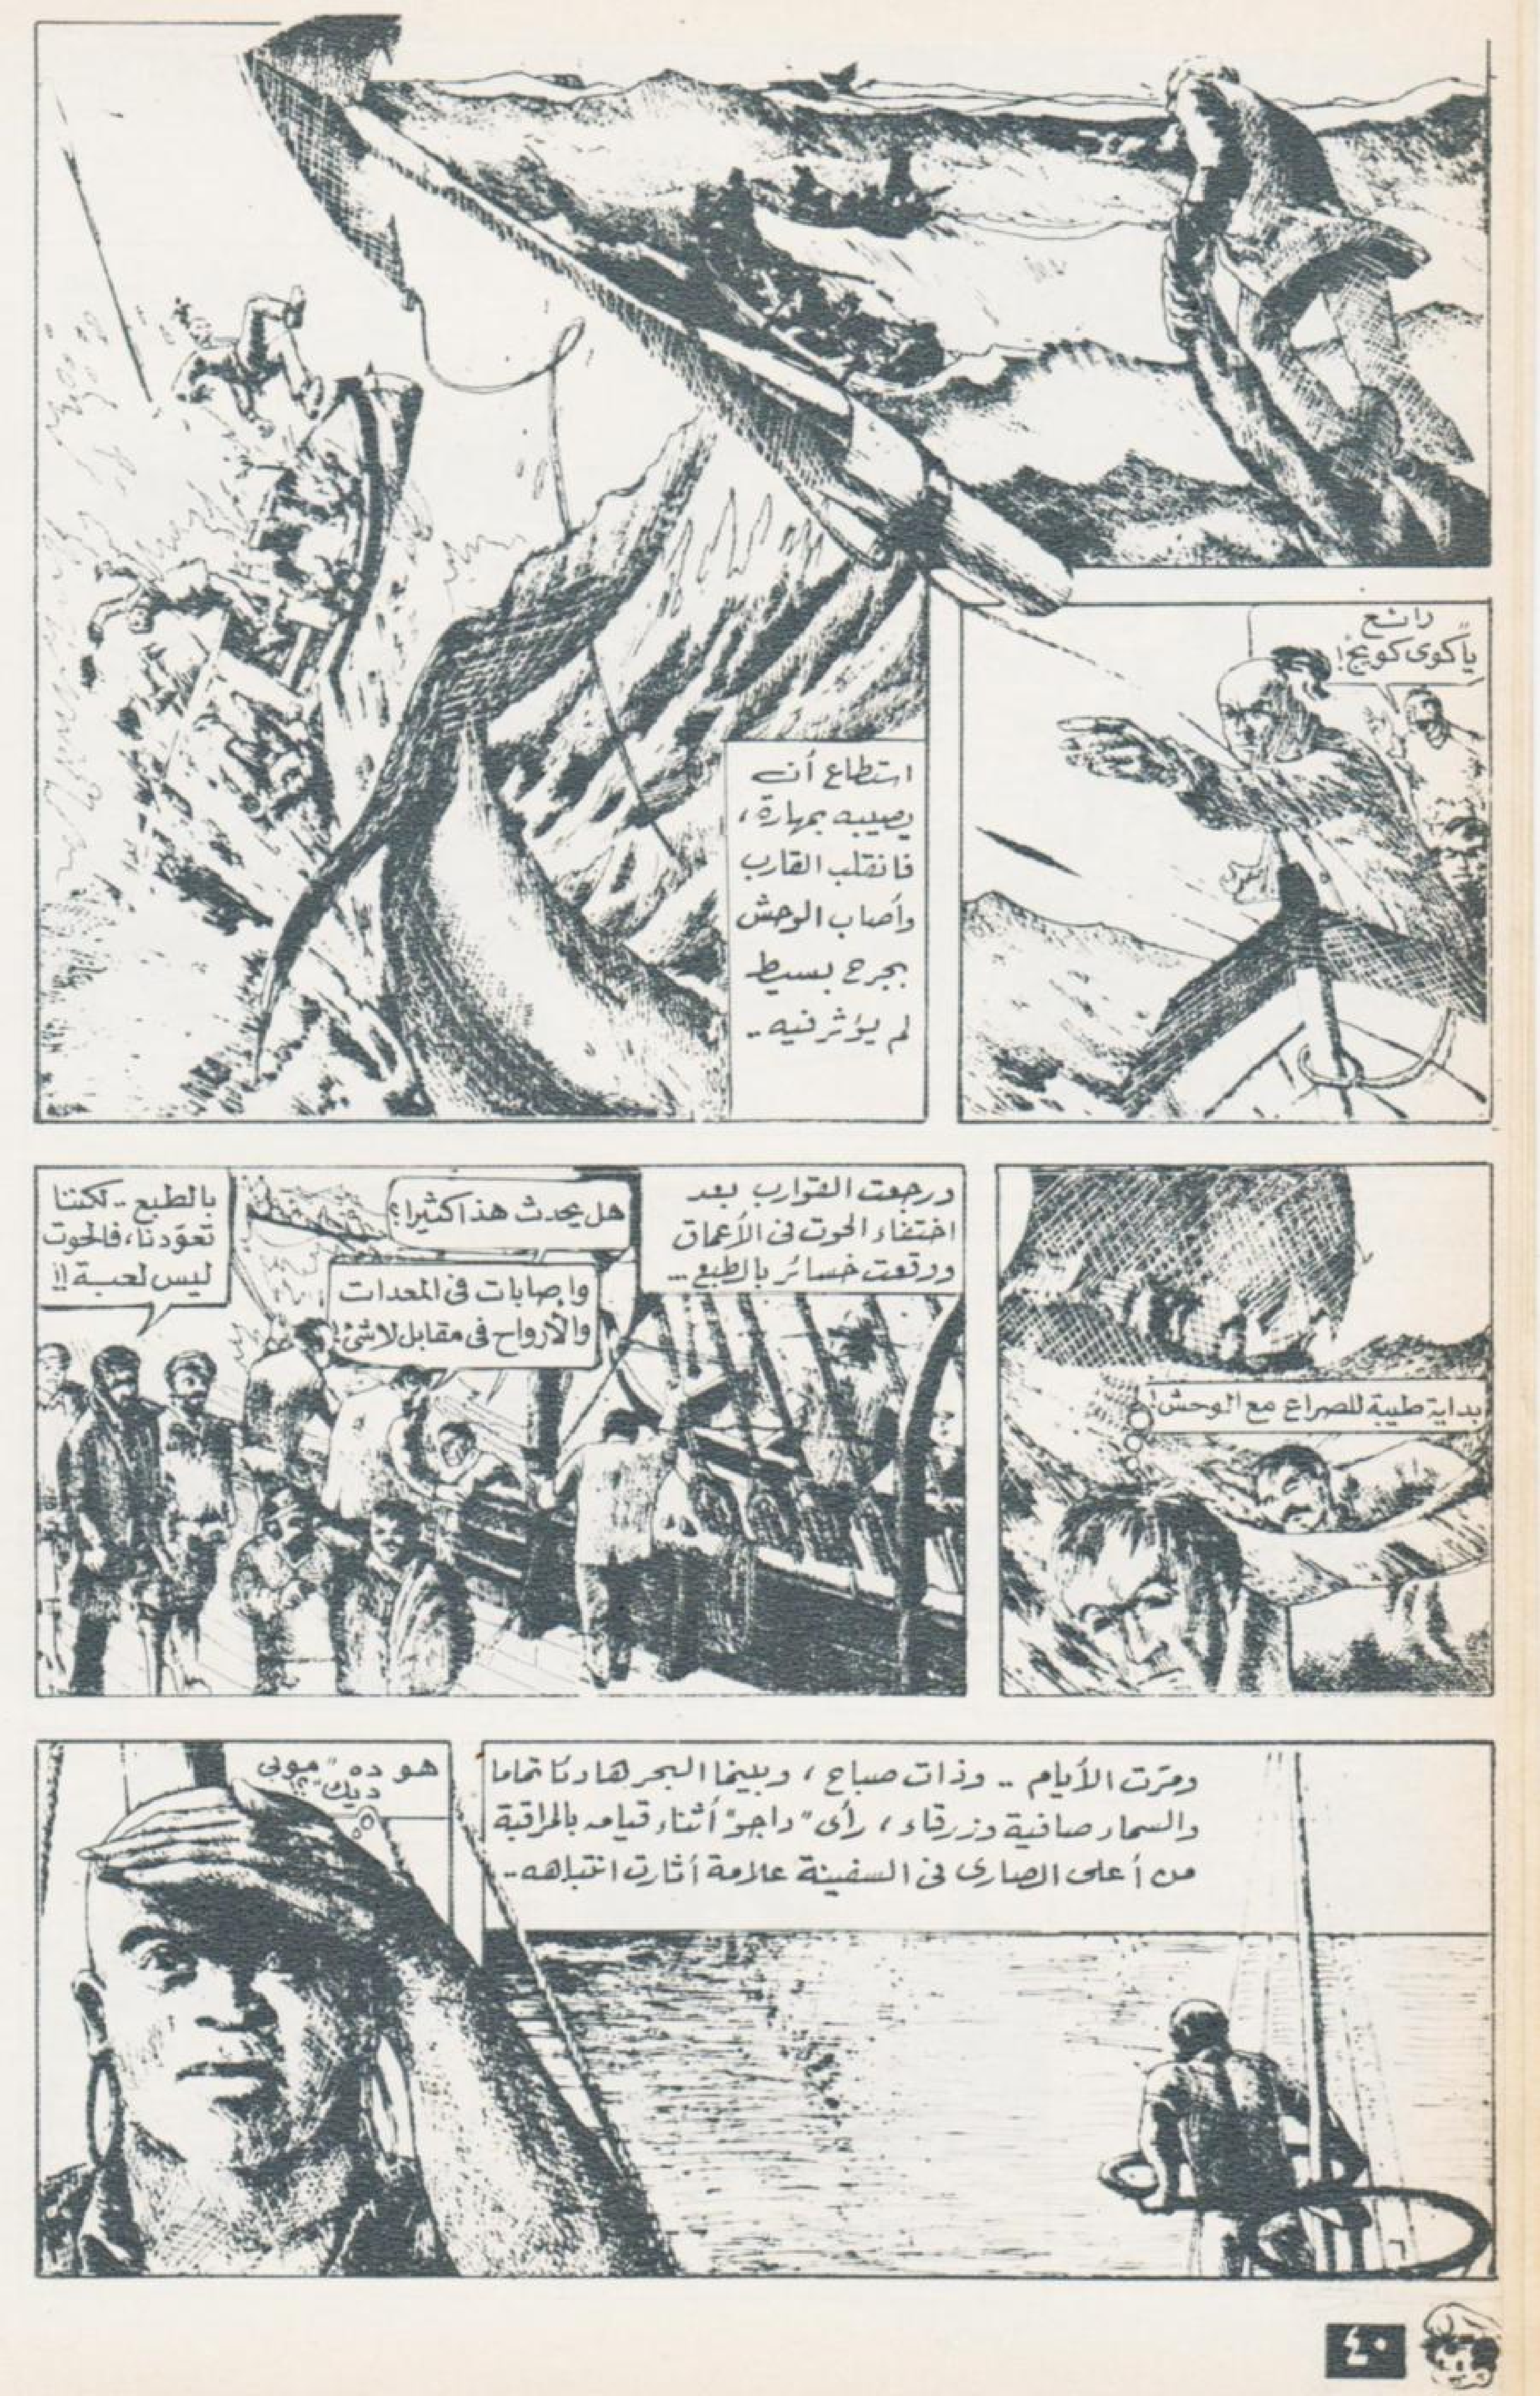 رائع
ياكوى كويج!
استطاع أن
يصيبه بمهارة،
فانقلب القارب
وأصاب الوحش
بجرح بسيط
لم يؤثر فيه..
بداية طيبة للصراع مع الوحش!
ورجعت القوارب بعد
اختفاء الحوت فى الأعماق
ووقعت خسائر بالطبع...
هل يحدث هذا كثيرا؟
وإصابات فى المعدات
والأرواح فى مقابل لاشئ!
بالطبع .. لكننا
تعوّدنا، فالحوت
ليس لعبة!!
ومرّت الأيام .. وذات صباح، وبينما البحر هادئا تماما
والسماء صافية وزرقاء، رأى "داجو" أثناء قيامه بالمراقبة
من أعلى الصارى فى السفينة علامة أثارت انتباهه..
هو ده "موبى
ديك"؟
٤٠